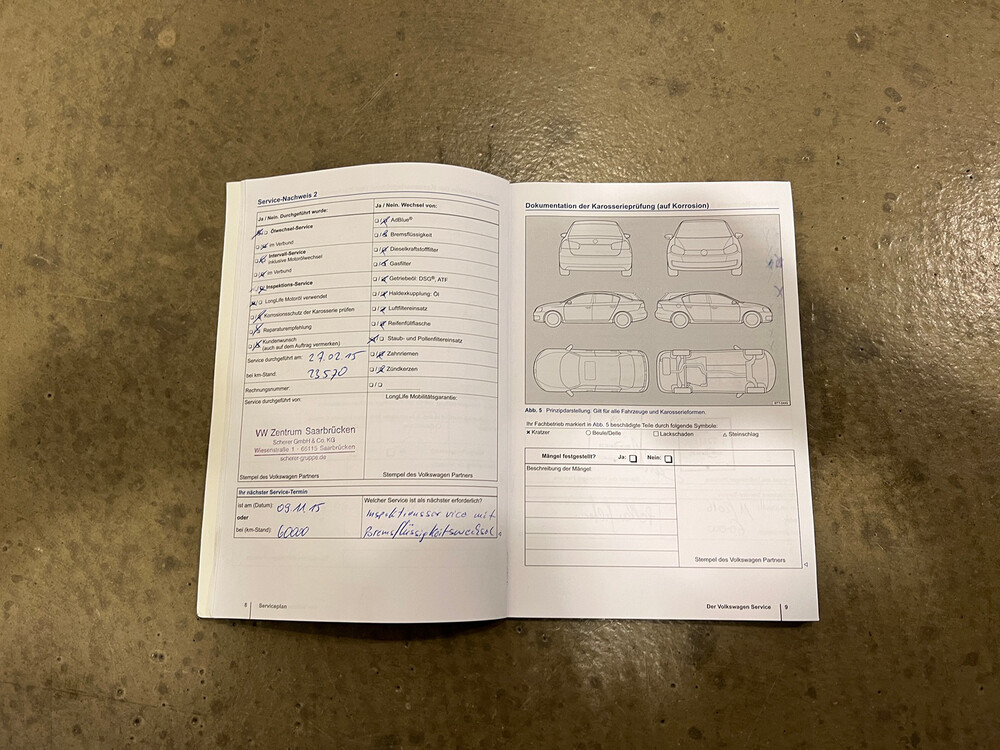 Service-Nachweis 2
Ja / Nein. Durchgeführt wurde:
Ölwechsel-Service
im Verbund
Intervall-Service
Inklusive Motorölwechsel
im Verbund
Inspektions-Service
LongLife Motoröl verwendet
Korrosionsschutz der Karosserie prüfen
Reparaturempfehlung
Kundenwunsch
(auch auf dem Auftrag vermerken)
Service durchgeführt am: 27.02.15
bei km-Stand: 23570
Rechnungsnummer:
Service durchgeführt von:
VW Zentrum Saarbrücken
Scherer GmbH & Co. KG
Wiesenstraße 1 - 66115 Saarbrücken
scherer-gruppe.de
Stempel des Volkswagen Partners
Ja / Nein. Wechsel von:
AdBlue®
Bremsflüssigkeit
Dieselkraftstofffilter
Gasfilter
Getriebeöl: DSG®, ATF
Haldexkupplung: Öl
Luftfiltereinsatz
Reifenfüllflasche
Staub- und Pollenfiltereinsatz
Zahnriemen
Zündkerzen
LongLife Mobilitätsgarantie:
Stempel des Volkswagen Partners
Ihr nächster Service-Termin
ist am (Datum): 09.11.15
oder
bei (km-Stand): 60000
Welcher Service ist als nächster erforderlich?
Inspektionsservice mit
Bremsflüssigkeitswechsel
8 Serviceplan
Dokumentation der Karosserieprüfung (auf Korrosion)
Abb. 5 Prinzipdarstellung: Gilt für alle Fahrzeuge und Karosserieformen.
Ihr Fachbetrieb markiert in Abb. 5 beschädigte Teile durch folgende Symbole:
Kratzer Beule/Delle Lackschaden Steinschlag
Mängel festgestellt? Ja: Nein:
Beschreibung der Mängel:
Stempel des Volkswagen Partners
Der Volkswagen Service 9